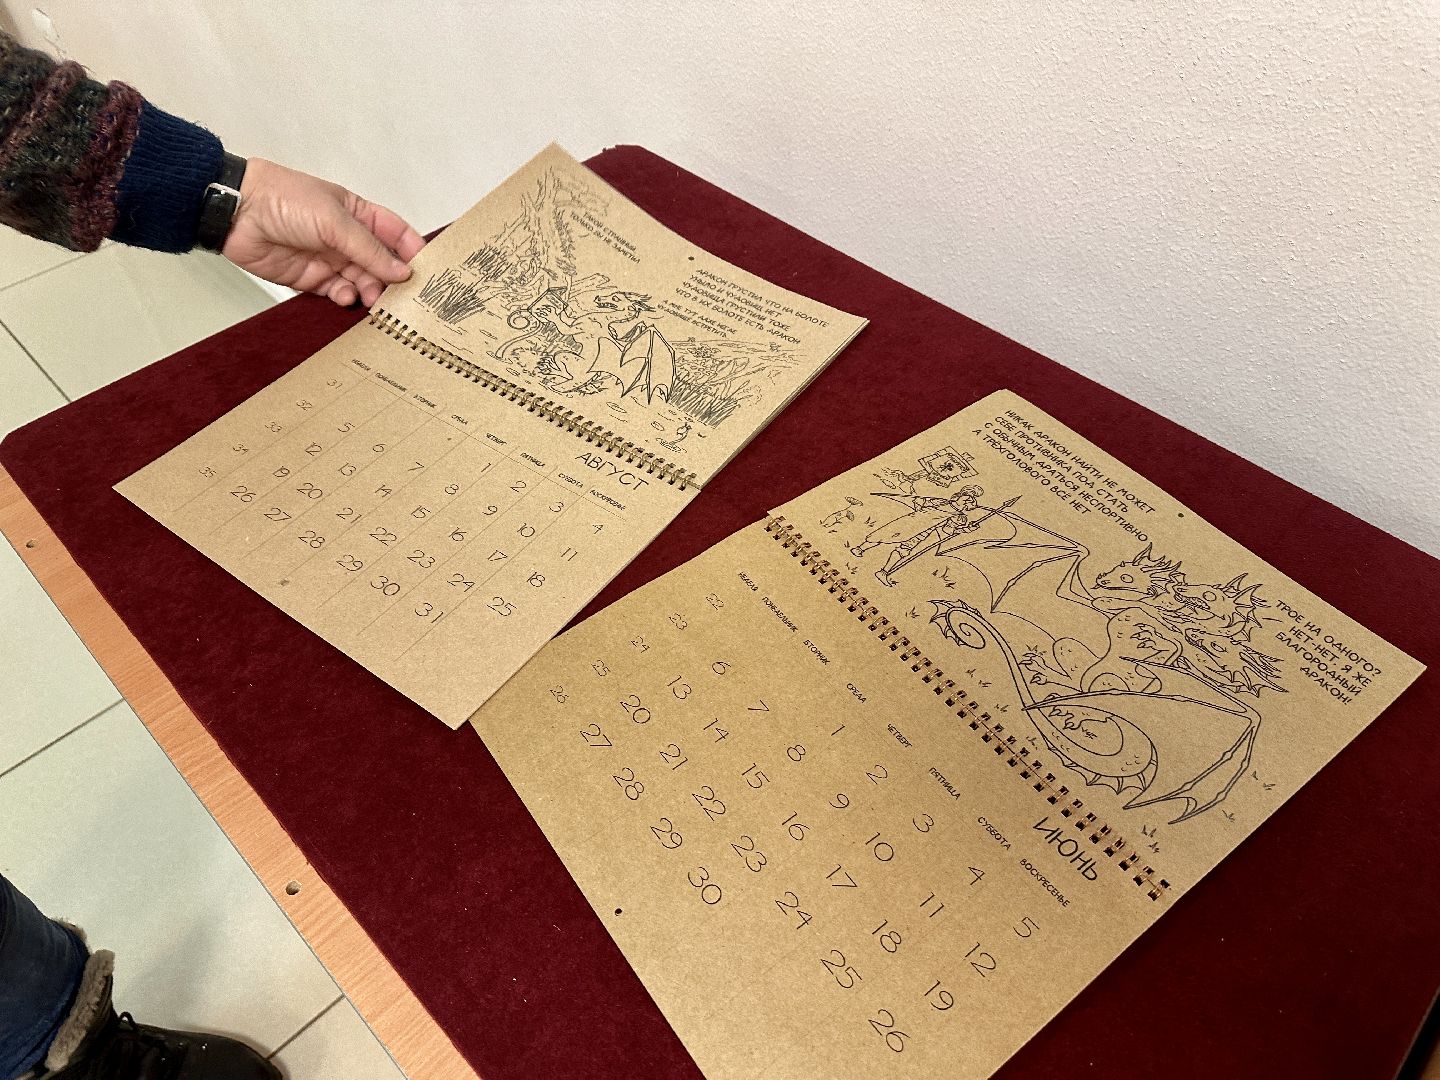 ТАКОЙ СТРАШНЫЙ,
ТОЛЬКО ВЫ НЕ ЗАМЕТИЛ
ДРАКОН ГРУСТИЛ ЧТО НА БОЛОТЕ
УНЫЛО И ЧУДОВИЩ НЕТ
ЧУДОВИЩА ГРУСТИЛИ ТОЖЕ
ЧТО В ИХ БОЛОТЕ ЕСТЬ ДРАКОН
А МНЕ ТУТ ДАЖЕ НЕГДЕ
ЧУДОВИЩЕ ВСТРЕТИТЬ
АВГУСТ
НЕДЕЛЯ ПОНЕДЕЛЬНИК ВТОРНИК СРЕДА ЧЕТВЕРГ ПЯТНИЦА СУББОТА ВОСКРЕСЕНЬЕ
31 1 2 3 4
32 5 6 7 8 9 10 11
33 12 13 14 15 16 17 18
34 19 20 21 22 23 24 25
35 26 27 28 29 30 31
НИКАК ДРАКОН НАЙТИ НЕ МОЖЕТ
СЕБЕ ПРОТИВНИКА ПОД СТАТЬ
С ОБЫЧНЫМ ДРАТЬСЯ НЕСПОРТИВНО
А ТРЁХГОЛОВОГО ВСЁ НЕТ
ТРОЕ НА ОДНОГО?
НЕТ-НЕТ. Я ЖЕ
БЛАГОРОДНЫЙ
ДРАКОН!
ИЮНЬ
НЕДЕЛЯ ПОНЕДЕЛЬНИК ВТОРНИК СРЕДА ЧЕТВЕРГ ПЯТНИЦА СУББОТА ВОСКРЕСЕНЬЕ
22 1 2 3 4 5
23 6 7 8 9 10 11 12
24 13 14 15 16 17 18 19
25 20 21 22 23 24 25 26
26 27 28 29 30